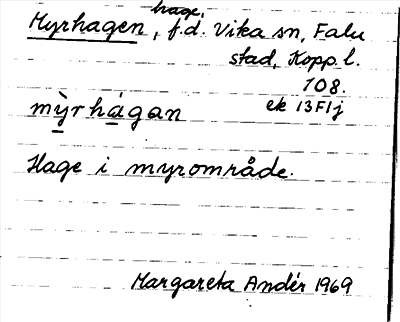 hage,
Myrhagen, f.d. Vika sn, Falu
stad, Kopp. l.
108.
ek 13F1j
mỳrhágan
Hage i myrområde.
Margareta Andér 1969